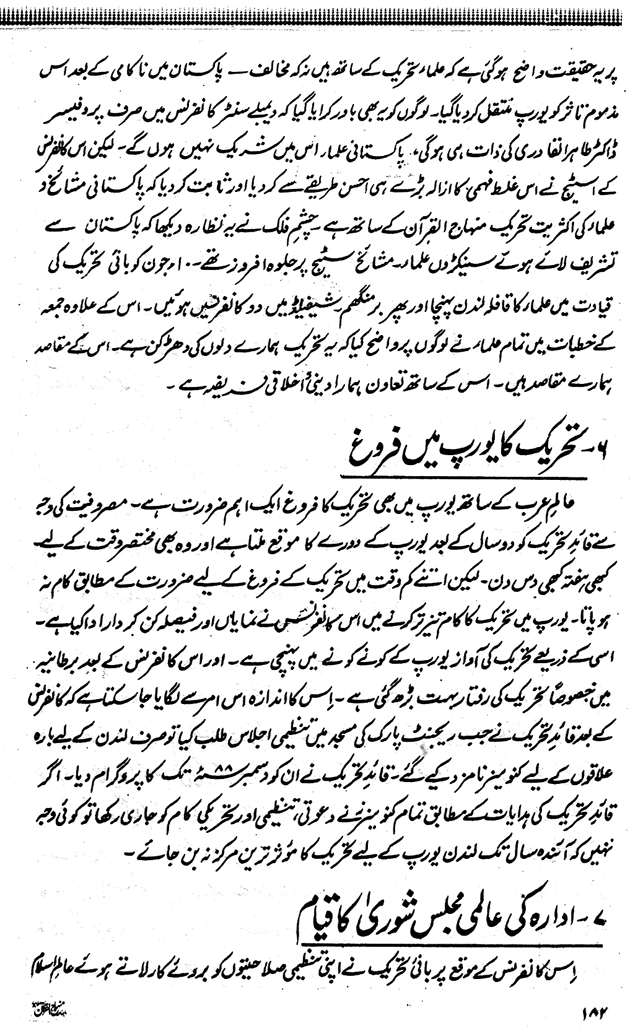 پر یہ حقیقت واضح ہو گئی ہے کہ علماء تحریک کے ساتھ ہیں نہ کہ مخالف – پاکستان میں ناکامی کے بعد اس
مذموم تاثر کو یورپ منتقل کر دیا گیا۔ لوگوں کو یہ بھی باور کرایا گیا کہ ویمبلے سنٹر کانفرنس میں صرف پروفیسر
ڈاکٹر طاہر القادری کی ذات ہی ہو گی، پاکستانی علماء اس میں شریک نہیں ہوں گے۔ لیکن اس کانفرنس
کے اسٹیج نے اس غلط فہمی کا ازالہ بڑے ہی احسن طریقے سے کر دیا اور ثابت کر دیا کہ پاکستانی مشائخ و
علماء کی اکثریت تحریک منہاج القرآن کے ساتھ ہے۔ چشم فلک نے یہ نظارہ دیکھا کہ پاکستان سے
تشریف لائے ہوئے سینکڑوں علماء، مشائخ سٹیج پر جلوہ افروز تھے۔ ۱۰ جون کو بانی تحریک کی
قیادت میں علماء کا قافلہ لندن پہنچا اور پھر برمنگھم، شیفیلڈ میں دو کانفرنسیں ہوئیں۔ اس کے علاوہ جمعہ
کے خطبات میں تمام علماء نے لوگوں پر واضح کیا کہ یہ تحریک ہمارے دلوں کی دھڑکن ہے۔ اس کے مقاصد
ہمارے مقاصد ہیں۔ اس کے ساتھ تعاون ہمارا دینی و اخلاقی فریضہ ہے۔
۶- تحریک کا یورپ میں فروغ
عالم عرب کے ساتھ یورپ میں بھی تحریک کا فروغ ایک اہم ضرورت ہے۔ مصروفیت کی وجہ
سے قائد تحریک کو دو سال کے بعد یورپ کے دورے کا موقع ملتا ہے اور وہ بھی مختصر وقت کے لیے۔
کبھی ہفتہ کبھی دس دن۔ لیکن اتنے کم وقت میں تحریک کے فروغ کے لیے ضرورت کے مطابق کام نہ
ہو پاتا۔ یورپ میں تحریک کا کام تیز تر کرنے میں اس کانفرنس نے نمایاں اور فیصلہ کن کردار ادا کیا ہے۔
اسی کے ذریعے تحریک کی آواز یورپ کے کونے کونے میں پہنچی ہے۔ اور اس کانفرنس کے بعد برطانیہ
میں خصوصاً تحریک کی رفتار بہت بڑھ گئی ہے۔ اِس کا اندازہ اس امر سے لگایا جا سکتا ہے کہ کانفرنس
کے بعد قائد تحریک نے جب ریجنٹ پارک کی مسجد میں تنظیمی اجلاس طلب کیا تو صرف لندن کے لیے بارہ
علاقوں کے لیے کنوینر نامزد کیے گئے۔ قائد تحریک نے ان کو دسمبر ۸۸ء تک کا پروگرام دیا۔ اگر
قائد تحریک کی ہدایات کے مطابق تمام کنوینرز نے دعوتی، تنظیمی اور تحریکی کام کو جاری رکھا تو کوئی وجہ
نہیں کہ آئندہ سال تک لندن یورپ کے لیے تحریک کا مؤثر ترین مرکز نہ بن جائے۔
۷- ادارہ کی عالمی مجلس شوریٰ کا قیام
اِس کانفرنس کے موقع پر بانی تحریک نے اپنی تنظیمی صلاحیتوں کو بروئے کار لاتے ہوئے عالم اسلام
۱۸۲